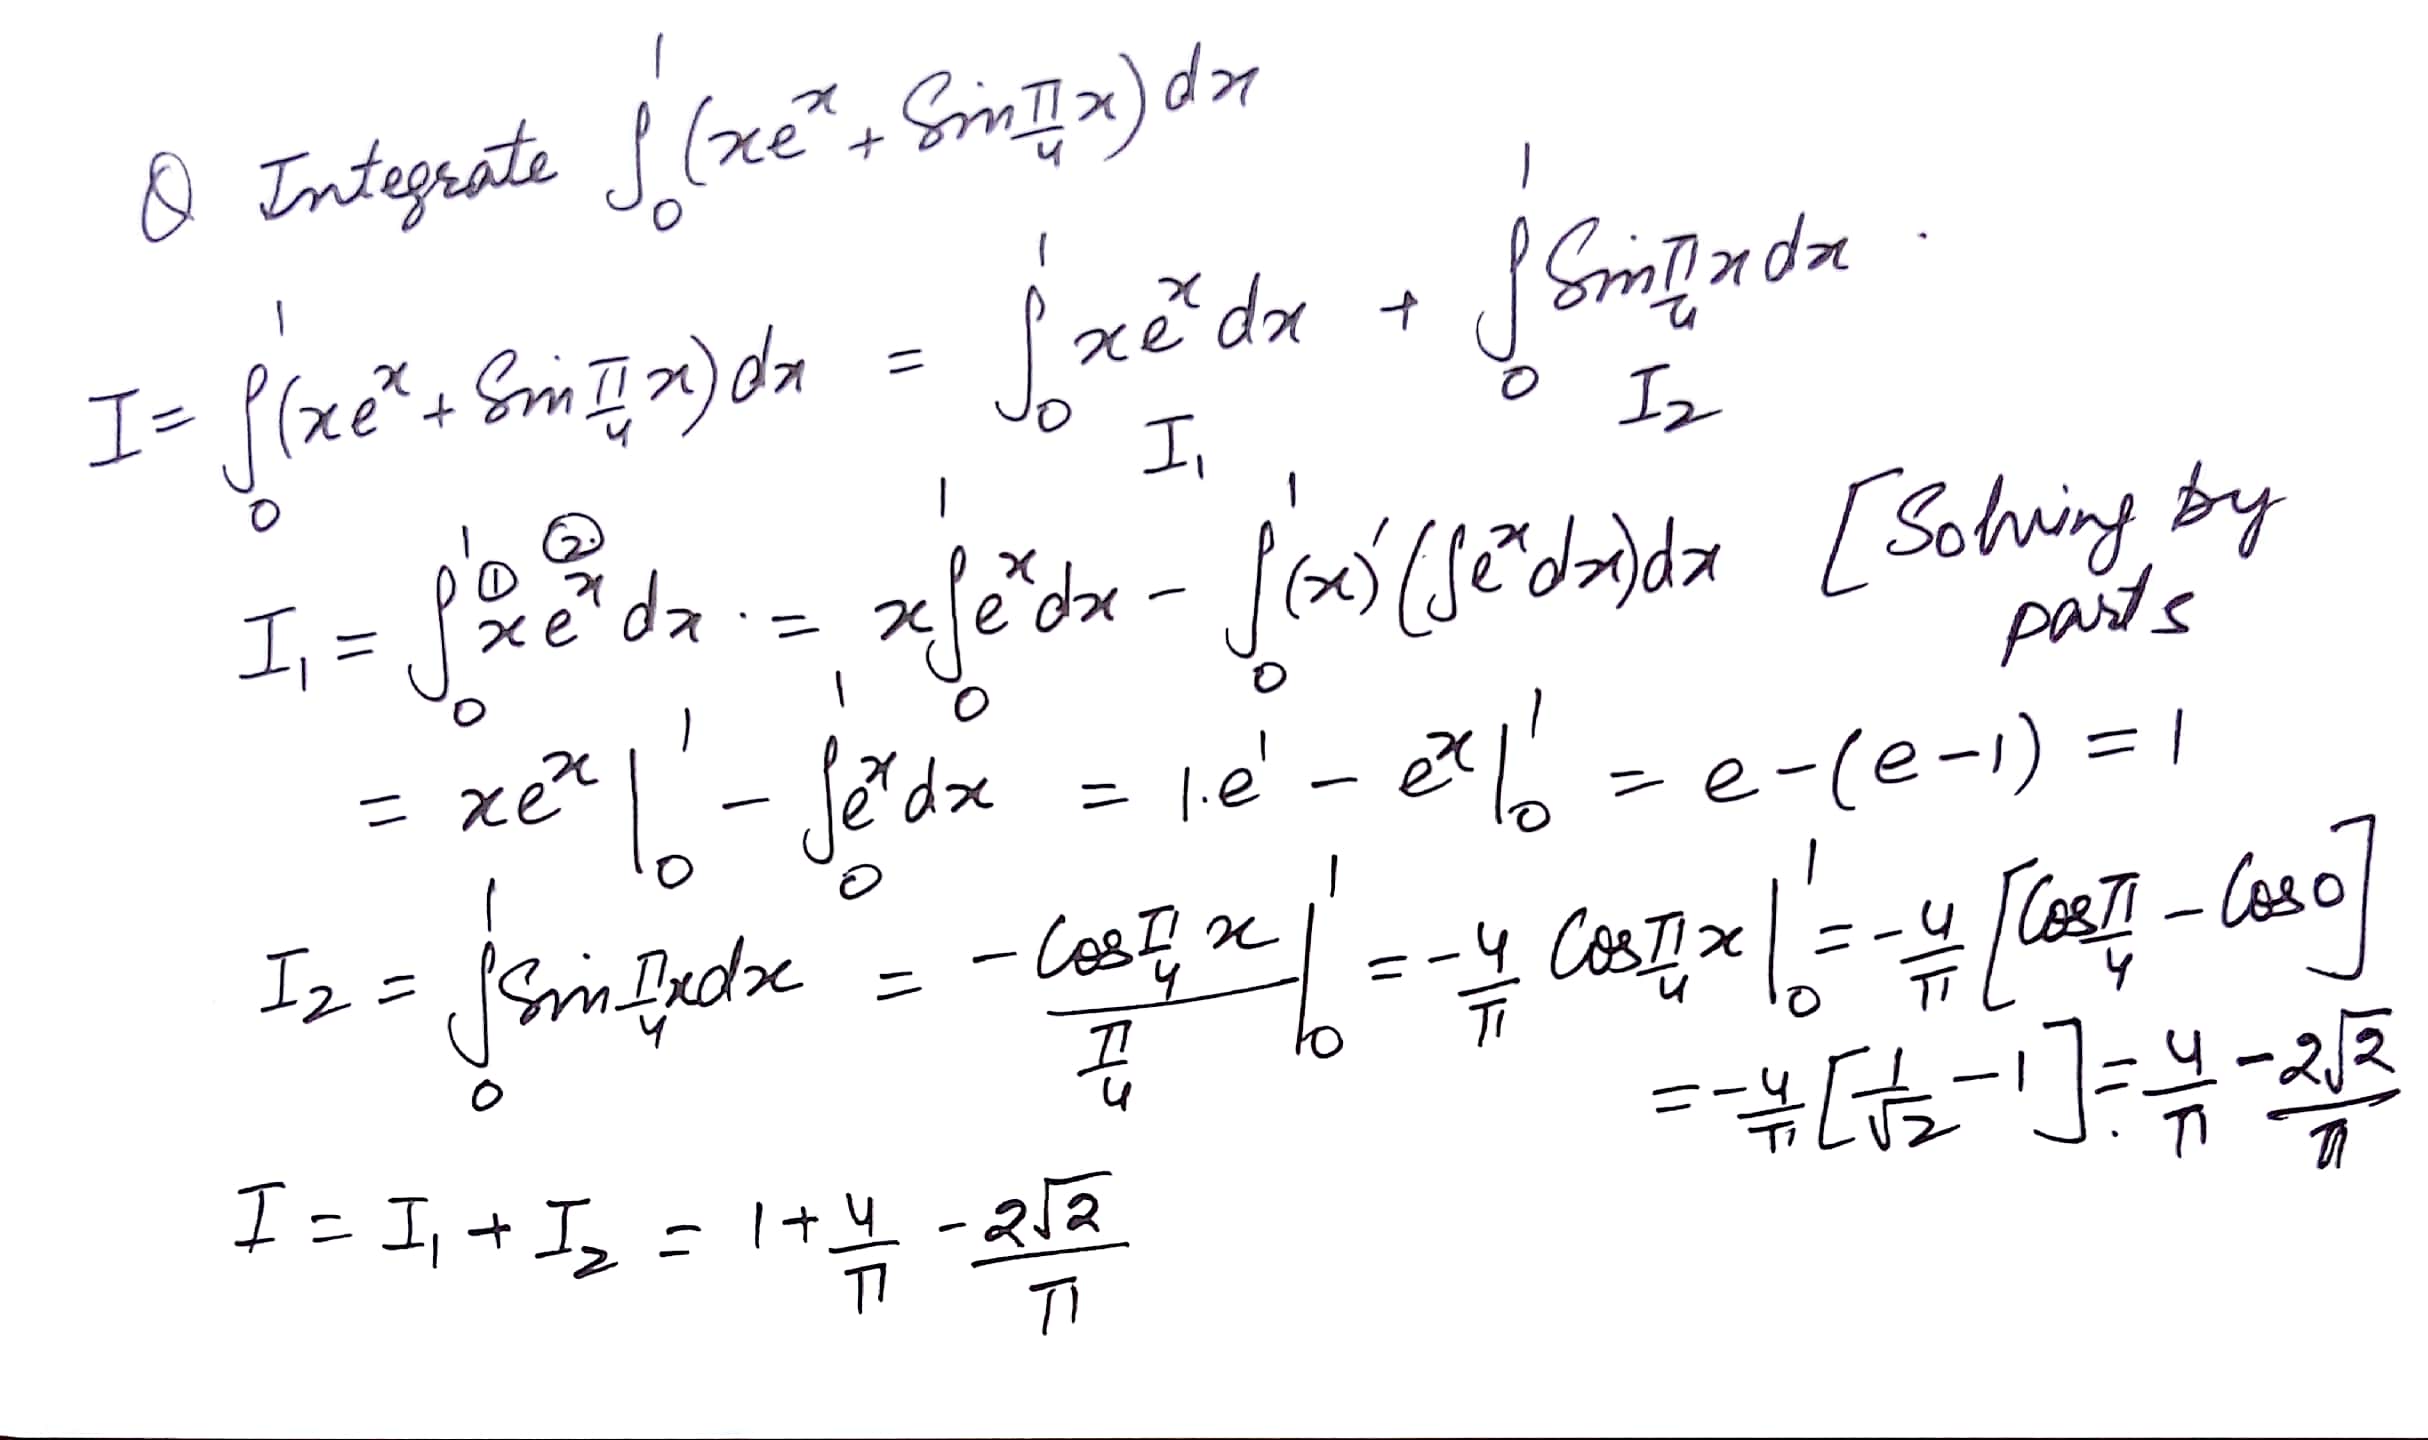 Q Integrate ∫₀¹ (xeˣ + Sin π/4 x) dx
I = ∫₀¹ (xeˣ + Sin π/4 x) dx = ∫₀¹ xeˣ dx + ∫₀¹ Sin π/4 x dx .
I₁ I₂
I₁ = ∫₀¹ x^① eˣ^② dx . = x ∫₀¹ eˣ dx - ∫₀¹ (x)′ (∫eˣ dx) dx [Solving by parts
= xeˣ |₀¹ - ∫₀¹ eˣ dx = 1.e¹ - eˣ |₀¹ = e - (e - 1) = 1
I₂ = ∫₀¹ Sin π/4 x dx = (-Cos π/4 x)/(π/4) |₀¹ = -4/π Cos π/4 x |₀¹ = -4/π [Cos π/4 - Cos 0]
= -4/π [1/√2 - 1] . = 4/π - 2√2/π
I = I₁ + I₂ = 1 + 4/π - 2√2/π